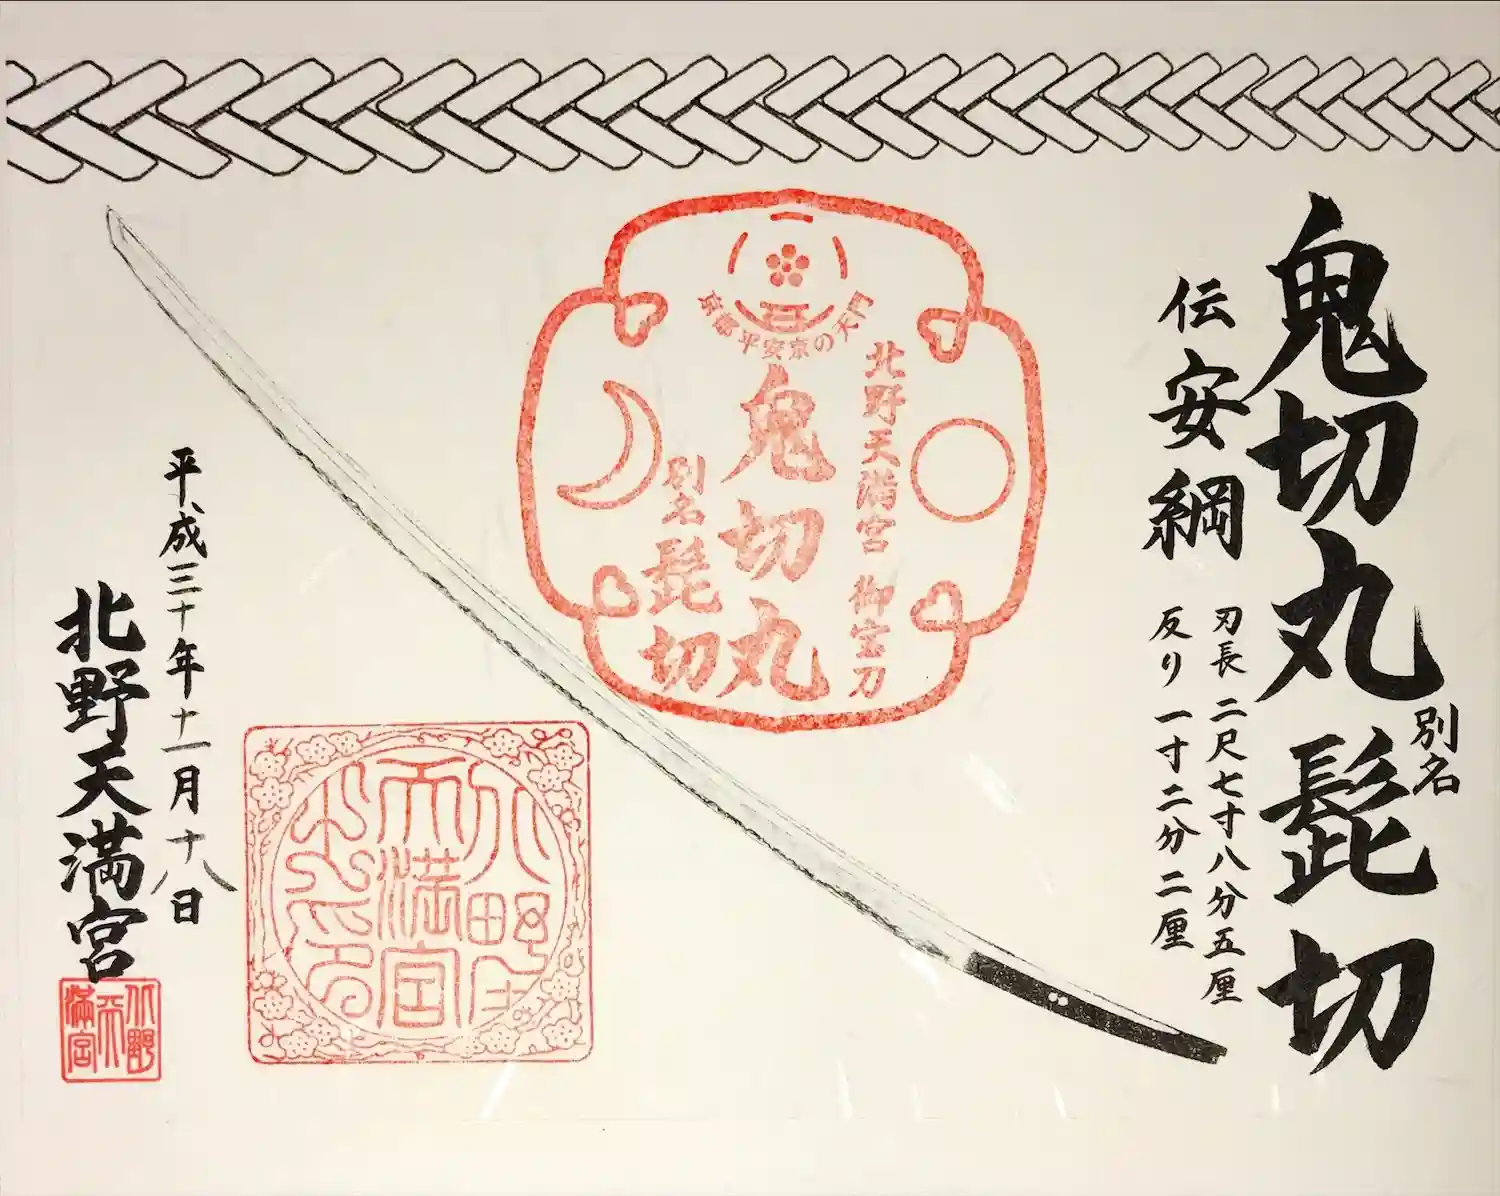 鬼切丸 別名 髭切
伝 安綱
刃長 二尺七寸八分五厘
反り 一寸二分二厘
京都 平安京の天門
北野天満宮 御宝刀
鬼切丸
別名 髭切
平成三十年十一月十八日
北野天満宮
北野天満宮
北野天満宮